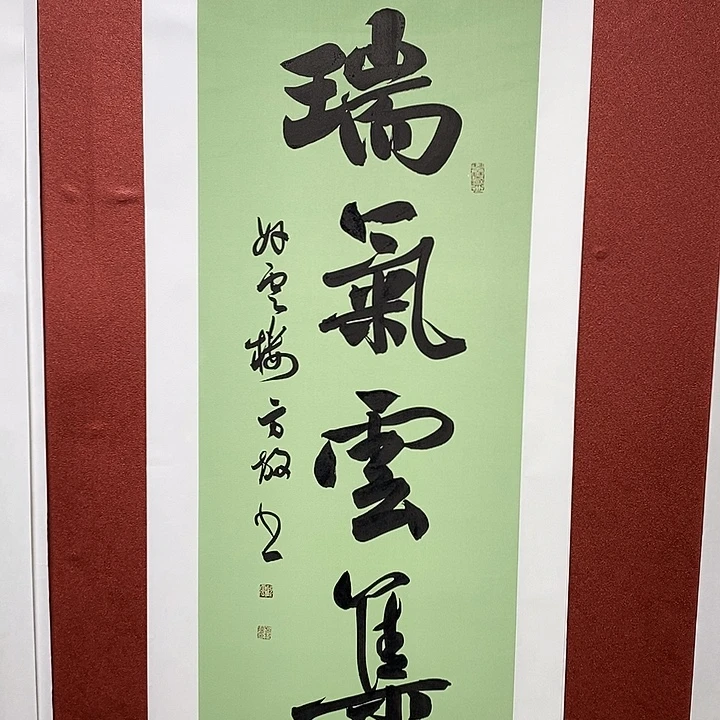 瑞氣雲集
好雲樓方放书